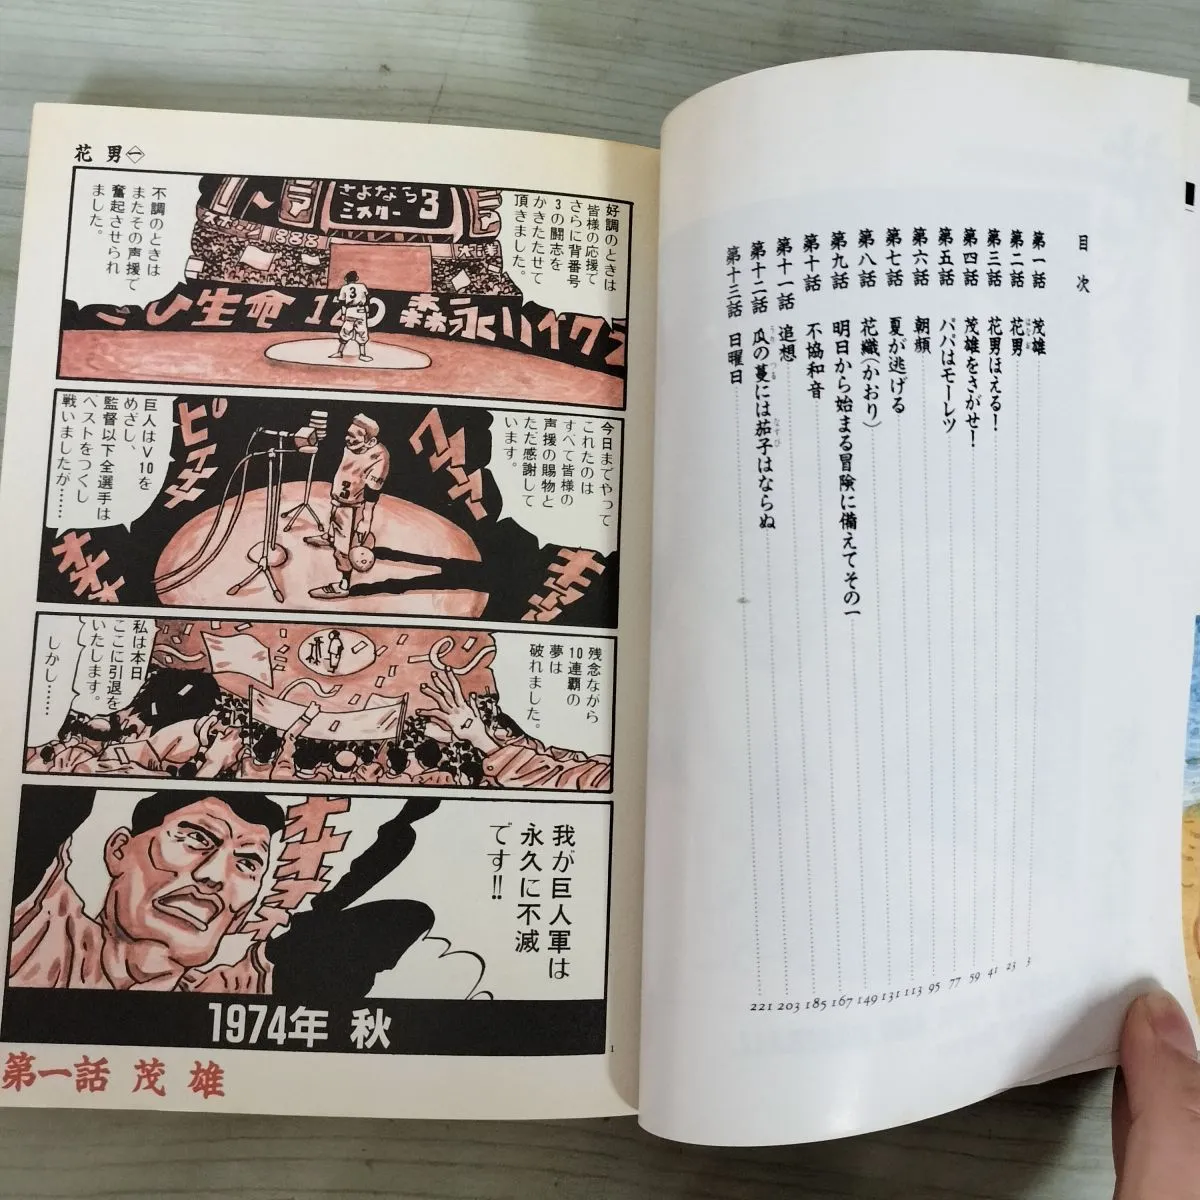 目 次
第一話 茂雄 3
第二話 花男 23
はなお
第三話 花男ほえる! 41
第四話 茂雄をさがせ! 59
第五話 パパはモーレツ 77
第六話 朝顔 95
第七話 夏が逃げる 113
第八話 花織(かおり) 131
第九話 明日から始まる冒険に備えてその一 149
第十話 不協和音 167
第十一話 追想 185
第十二話 瓜の蔓には茄子はならぬ 203
うり つる なすび
第十三話 日曜日 221
花 男 一
好調のときは
皆様の応援で
さらに背番号
3の闘志を
かきたたせて
頂きました。
さよなら
ミスター 3
不調のときは
またその声援で
奮起させられ
ました。
生命 120 森永
今日までやって
これたのは
すべて皆様の
声援の賜物と
ただ感謝して
います。
巨人はV10を
めざし、
監督以下全選手は
ベストをつくし
戦いましたが……
3
残念ながら
10連覇の
夢は
破れました。
私は本日
ここに引退を
いたします。
しかし……
我が巨人軍は
永久に不滅
です!!
1974年 秋
1
第一話 茂雄